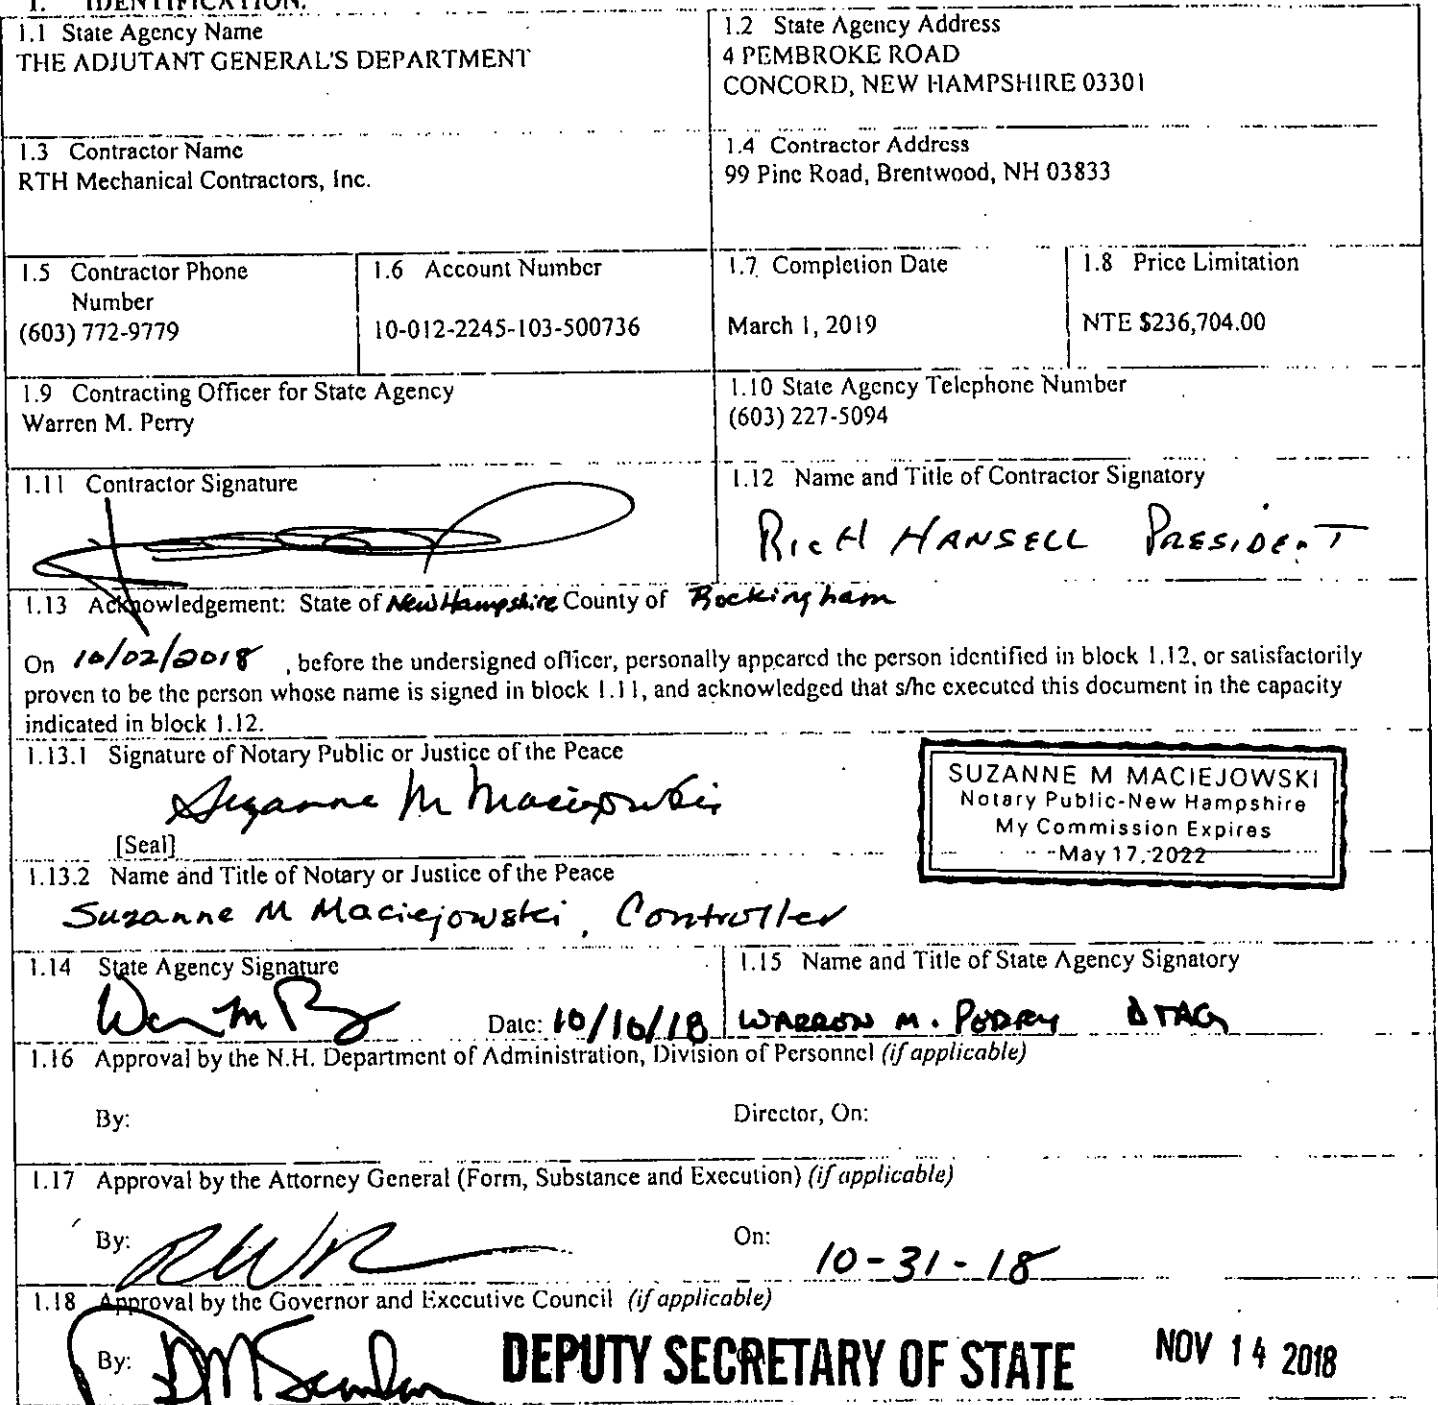 1. IDENTIFICATION.
1.1 State Agency Name
THE ADJUTANT GENERAL'S DEPARTMENT
1.2 State Agency Address
4 PEMBROKE ROAD
CONCORD, NEW HAMPSHIRE 03301
1.3 Contractor Name
RTH Mechanical Contractors, Inc.
1.4 Contractor Address
99 Pine Road, Brentwood, NH 03833
1.5 Contractor Phone
Number
(603) 772-9779
1.6 Account Number
10-012-2245-103-500736
1.7 Completion Date
March 1, 2019
1.8 Price Limitation
NTE $236,704.00
1.9 Contracting Officer for State Agency
Warren M. Perry
1.10 State Agency Telephone Number
(603) 227-5094
1.11 Contractor Signature
1.12 Name and Title of Contractor Signatory
RICH HANSELL PRESIDENT
1.13 Acknowledgement: State of New Hampshire County of Rockingham
On 10/02/2018 , before the undersigned officer, personally appeared the person identified in block 1.12, or satisfactorily
proven to be the person whose name is signed in block 1.11, and acknowledged that s/he executed this document in the capacity
indicated in block 1.12.
1.13.1 Signature of Notary Public or Justice of the Peace
Suzanne M Maciejowski
[Seal]
SUZANNE M MACIEJOWSKI
Notary Public-New Hampshire
My Commission Expires
May 17, 2022
1.13.2 Name and Title of Notary or Justice of the Peace
Suzanne M Maciejowski, Controller
1.14 State Agency Signature
Date: 10/10/18
1.15 Name and Title of State Agency Signatory
WARREN M. PERRY DTAG
1.16 Approval by the N.H. Department of Administration, Division of Personnel (if applicable)
By:
Director, On:
1.17 Approval by the Attorney General (Form, Substance and Execution) (if applicable)
By:
On: 10-31-18
1.18 Approval by the Governor and Executive Council (if applicable)
By:
DEPUTY SECRETARY OF STATE
NOV 14 2018